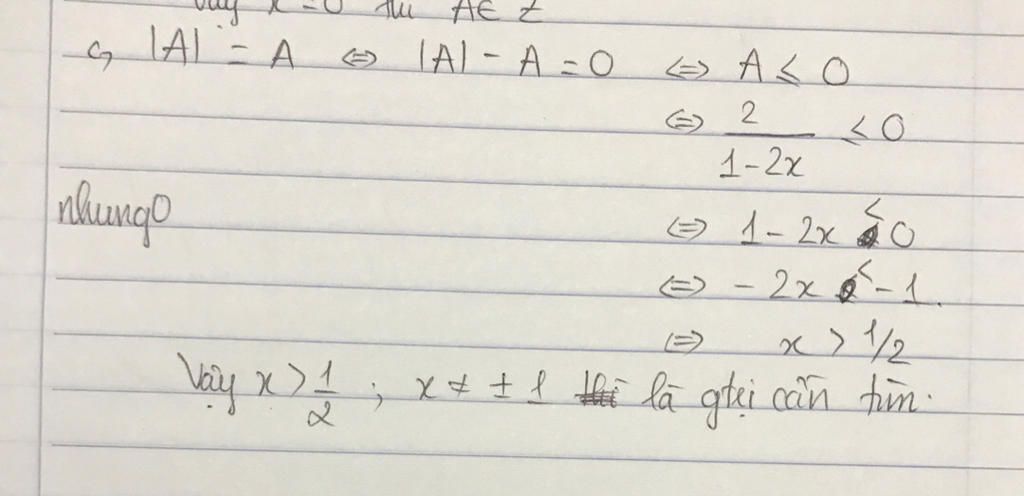 Vậy x = 0 thì A ∈ Z
c, |A| = A ⇔ |A| - A = 0 ⇔ A ≤ 0
⇔ 2/(1-2x) < 0
nhungO
⇔ 1 - 2x < 0
⇔ - 2x < - 1.
⇔ x > 1/2
Vậy x > 1/2 ; x ≠ ± 1 là gtrị cần tìm.